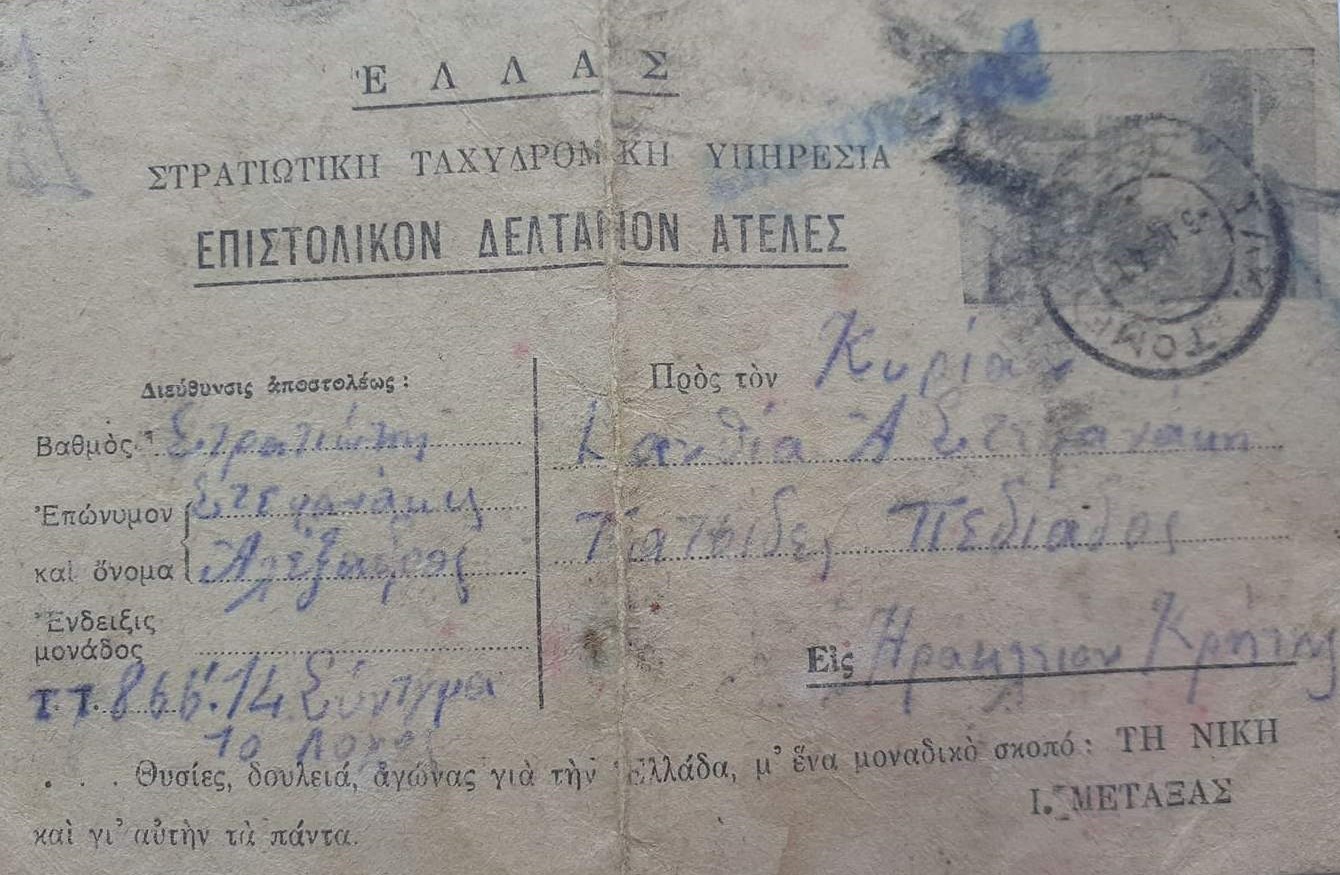 ἙΛΛΑΣ
ΣΤΡΑΤΙΩΤΙΚΗ ΤΑΧΥΔΡΟΜΙΚΗ ΥΠΗΡΕΣΙΑ
ΕΠΙΣΤΟΛΙΚΟΝ ΔΕΛΤΑΡΙΟΝ ΑΤΕΛΕΣ
Διεύθυνσις ἀποστολέως :
Βαθμὸς Στρατιώτης
Ἐπώνυμον Στεφανάκις
καὶ ὄνομα Ἀλέξανδρος
Ἔνδειξις
μονάδος
Τ.Τ. 866. 14 Σύνταγμα
10 Λόχος
Πρὸς τὸν Κυρίαν
Ξανθία Ἀ Στεφανάκη
Πεδιάδος
Εἰς Ἡράκλειον Κρήτης
. . . Θυσίες, δουλειά, ἀγώνας γιὰ τὴν Ἑλλάδα, μ' ἕνα μοναδικὸ σκοπό : ΤΗ ΝΙΚΗ
καὶ γι' αὐτὴν τὰ πάντα.
Ι. ΜΕΤΑΞΑΣ